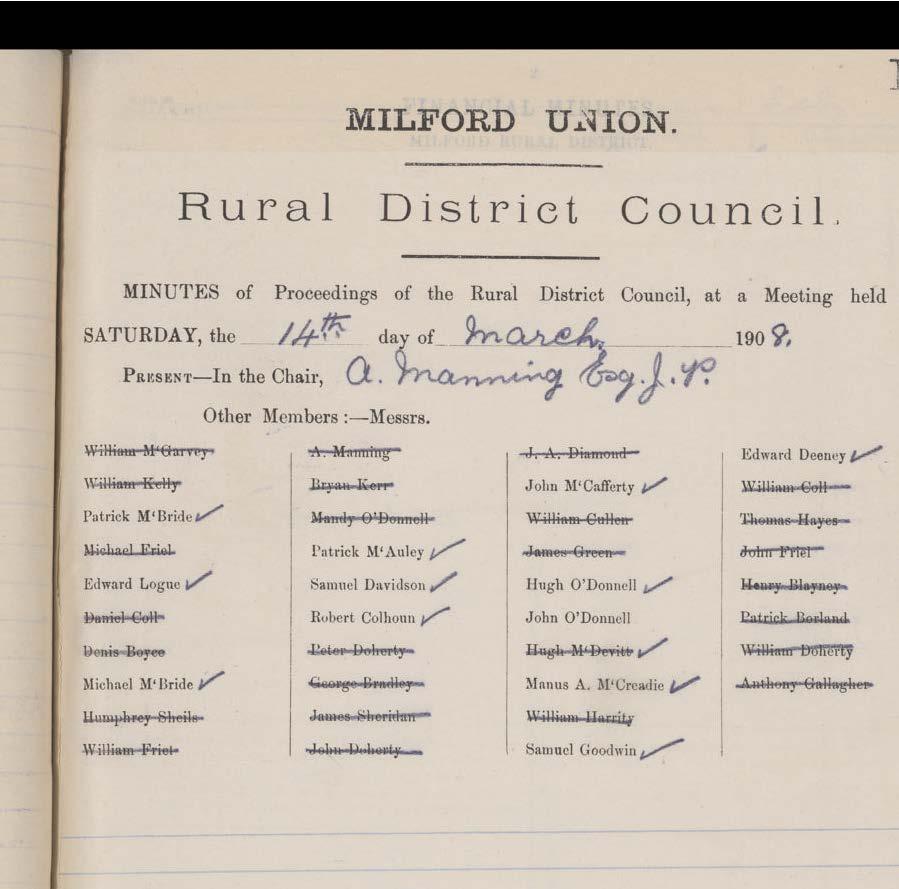 MILFORD UNION.
Rural District Council.
MINUTES of Proceedings of the Rural District Council, at a Meeting held
SATURDAY, the 14th day of March, 1908.
PRESENT—In the Chair, A. Manning Esq. J.P.
Other Members :—Messrs.
William M‘Garvey
William Kelly
Patrick M‘Bride
Michael Friel
Edward Logue
Daniel Coll
Denis Boyce
Michael M‘Bride
Humphrey Sheils
William Friel
A. Manning
Bryan Kerr
Mandy O’Donnell
Patrick M‘Auley
Samuel Davidson
Robert Colhoun
Peter Doherty
George Bradley
James Sheridan
John Doherty
J. A. Diamond
John M‘Cafferty
William Cullen
James Green
Hugh O’Donnell
John O’Donnell
Hugh M‘Devitt
Manus A. M‘Creadie
William Harrity
Samuel Goodwin
Edward Deeney
William Coll
Thomas Hayes
John Friel
Henry Blayney
Patrick Borland
William Doherty
Anthony Gallagher